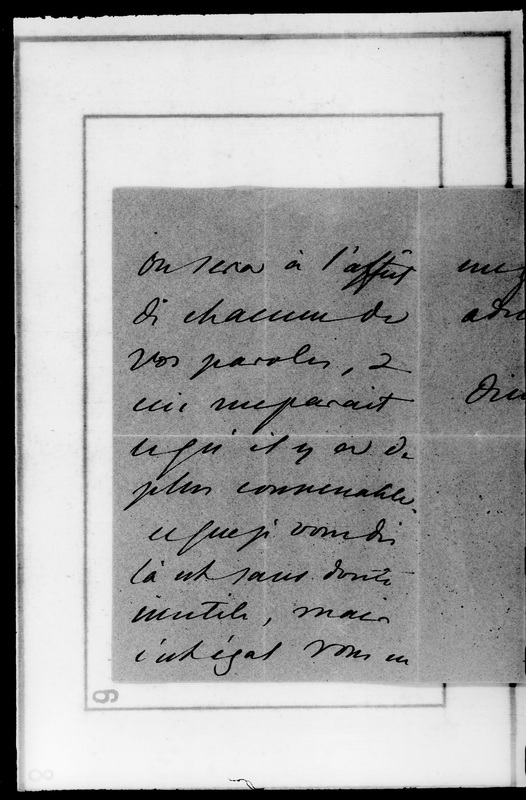 on sera à l'affût
de chacune de
vos paroles, &
ceci me parait
ce qu'il y a de
plus convenable.
ce que je vous dis
là est sans doute
inutile, mais
c'est égal vous en
6
8